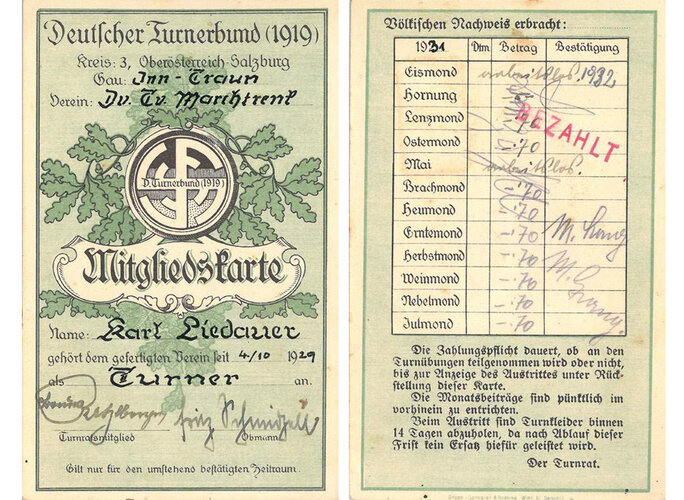 Deutscher Turnerbund (1919)
Kreis: 3, Oberösterreich-Salzburg
Gau: Inn-Traun
Verein: Dv. Tv. Marchtrenk
D. Turnerbund (1919)
Mitgliedskarte
Name: Karl Liedauer
gehört dem gefertigten Verein seit 4/10 1929
als Turner an.
Fritz
Turnratsmitglied Obmann
Gilt nur für den umstehend bestätigten Zeitraum.
Völkischen Nachweis erbracht:
1931 Dtm Betrag Bestätigung
Eismond arbeitslos. 1932
Hornung
Lenzmond
BEZAHLT
Ostermond -.70
Mai arbeitslos.
Brachmond -.70
Heumond -.70
Erntemond -.70
Herbstmond -.70
Weinmond -.70
Nebelmond -.70
Julmond -.70
Die Zahlungspflicht dauert, ob an den
Turnübungen teilgenommen wird oder nicht,
bis zur Anzeige des Austrittes unter Rück-
stellung dieser Karte.
Die Monatsbeiträge sind pünktlich im
vorhinein zu entrichten.
Beim Austritt sind Turnkleider binnen
14 Tagen abzuholen, da nach Ablauf dieser
Frist kein Ersatz hiefür geleistet wird.
Der Turnrat.